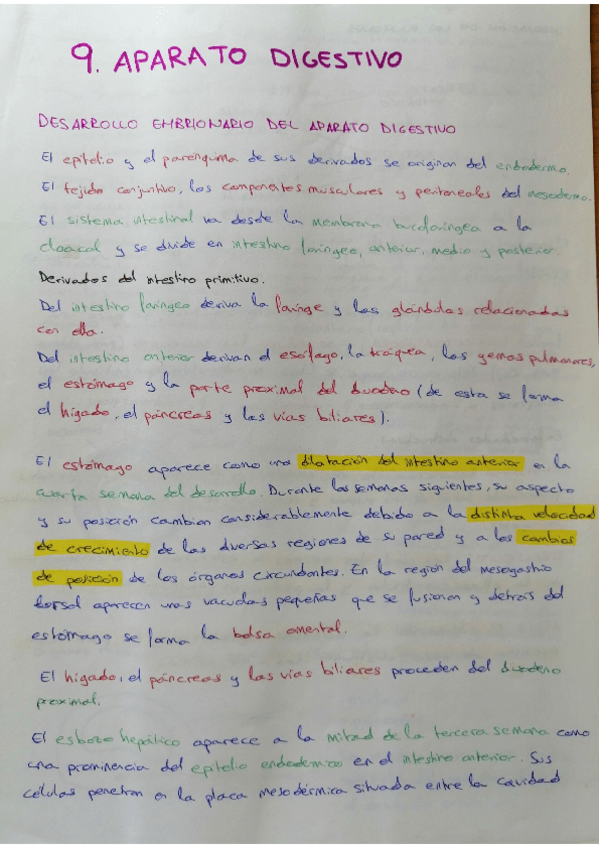 9. APARATO DIGESTIVO
DESARROLLO EMBRIONARIO DEL APARATO DIGESTIVO
El epitelio y el parénquima de sus derivados se originan del endodermo.
El tejido conjuntivo, los componentes musculares y peritoneales del mesodermo.
El sistema intestinal va desde la membrana bucofaríngea a la
cloacal y se divide en intestino faríngeo, anterior, medio y posterior.
Derivados del intestino primitivo.
Del intestino faríngeo deriva la faringe y las glándulas relacionadas
con ella.
Del intestino anterior derivan el esófago, la tráquea, las yemas pulmonares,
el estómago y la parte proximal del duodeno (de esta se forma
el hígado, el páncreas y las vías biliares).
El estómago aparece como una dilatación del intestino anterior en la
cuarta semana del desarrollo. Durante las semanas siguientes, su aspecto
y su posición cambian considerablemente debido a la distinta velocidad
de crecimiento de las diversas regiones de su pared y a los cambios
de posición de los órganos circundantes. En la región del mesogastrio
dorsal aparecen unas vacuolas pequeñas que se fusionan y detrás del
estómago se forma la bolsa omental.
El hígado, el páncreas y las vías biliares proceden del duodeno
proximal.
El esbozo hepático aparece a la mitad de la tercera semana como
una prominencia del epitelio endodérmico en el intestino anterior. Sus
células penetran en la placa mesodérmica situada entre la cavidad